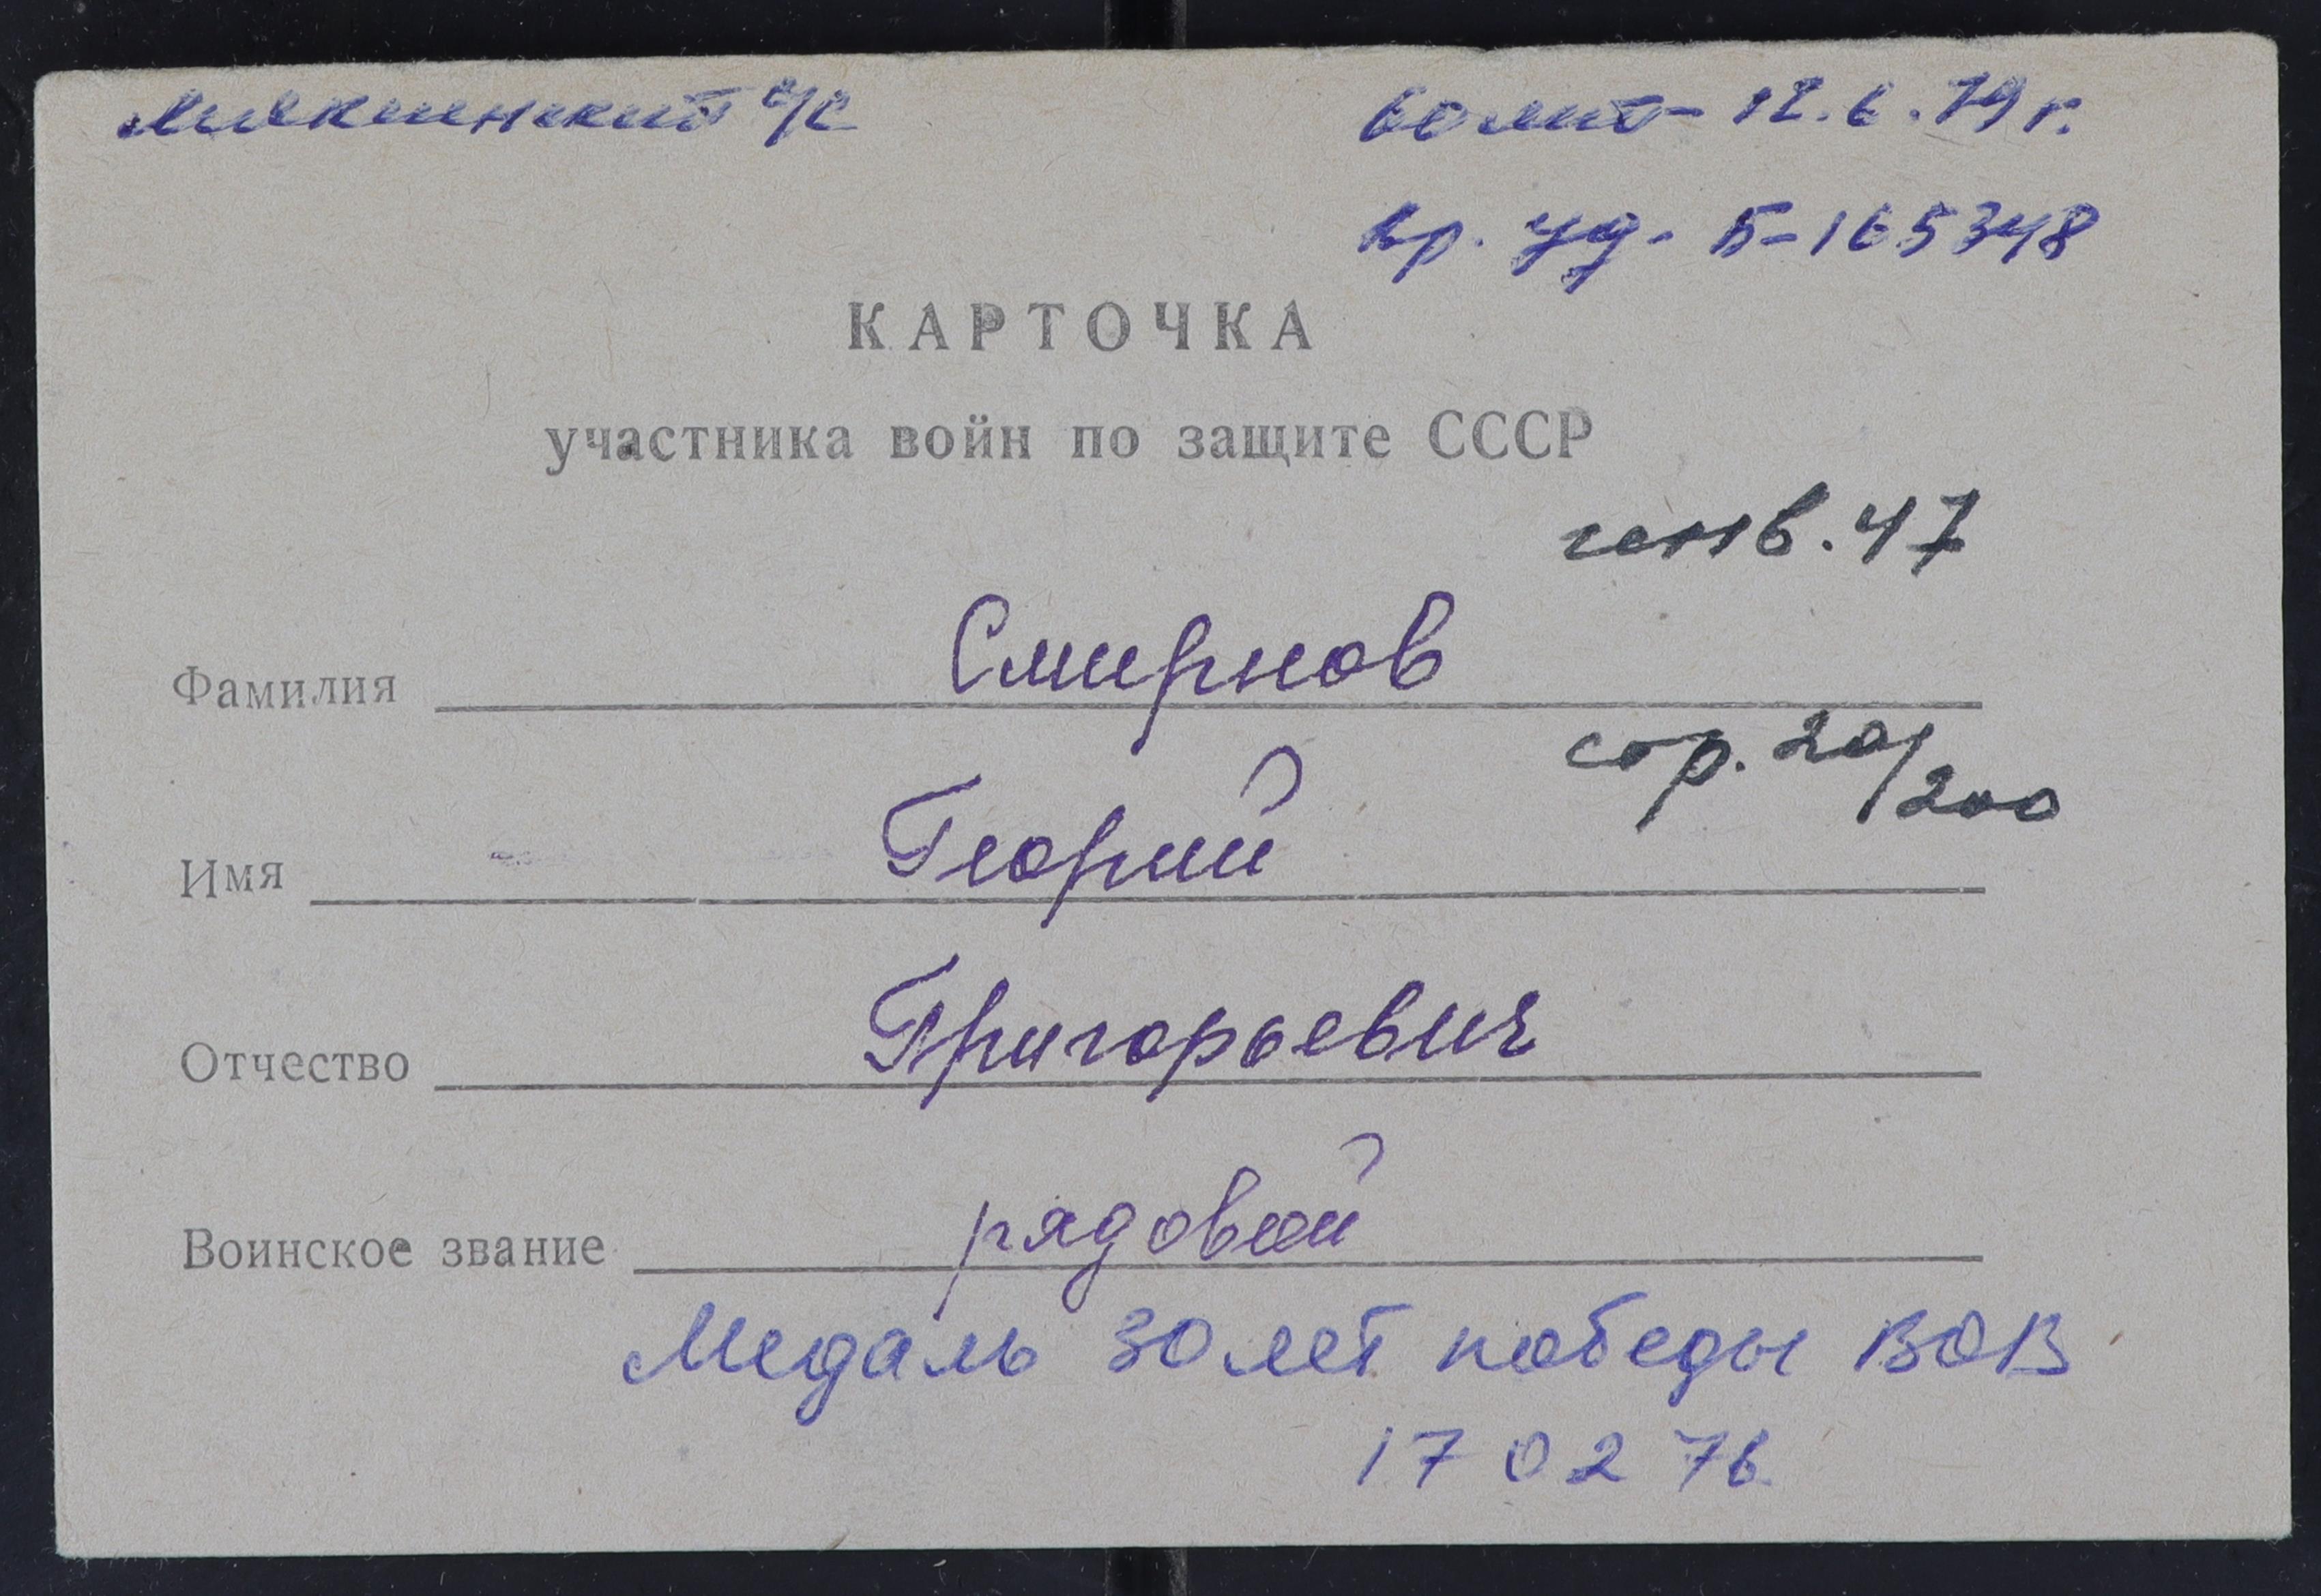 Мякшинский с/с
60 лет - 12.6.79 г.
вр. уд. Б-165348
КАРТОЧКА
участника войн по защите СССР
инв. 47
Фамилия Смирнов
стр. 20/200
Имя Георгий
Отчество Григорьевич
Воинское звание рядовой
Медаль 30 лет победы ВОВ
17 02 76